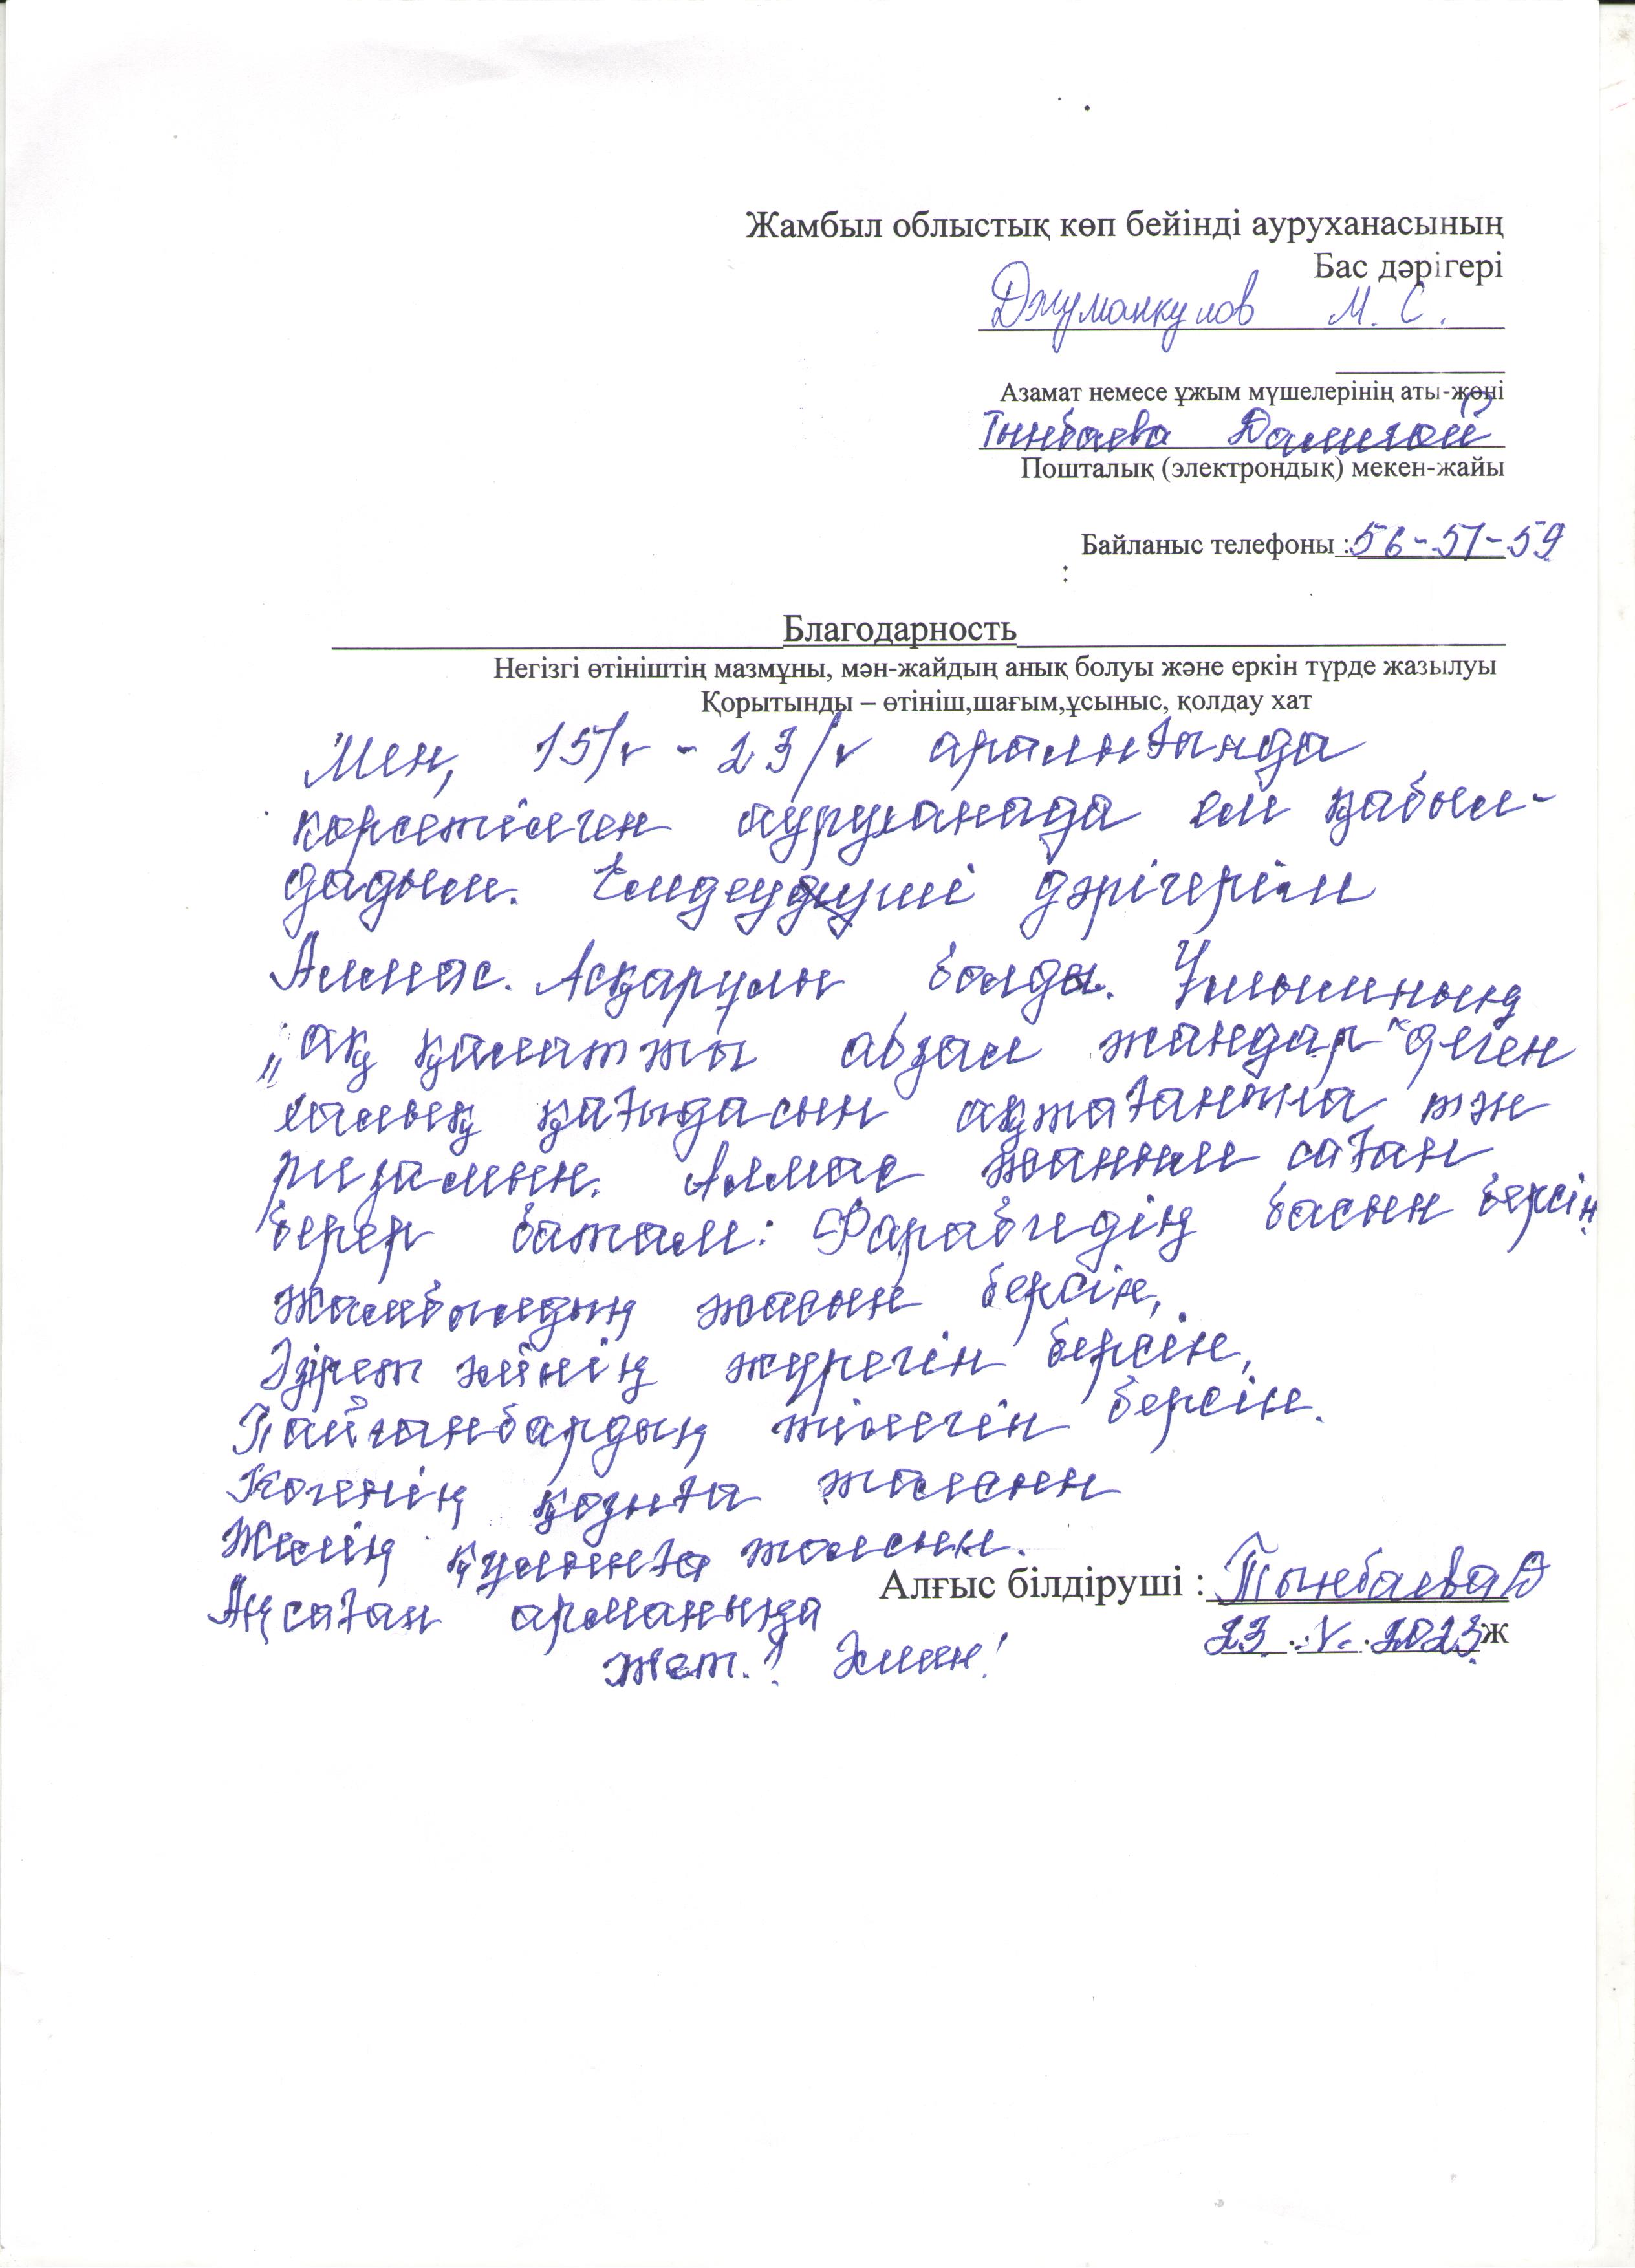 Жамбыл облыстық көп бейінді ауруханасының
Бас дәрігері
Джуманкулов М. С.
Азамат немесе ұжым мүшелерінің аты-жөні
Тынбаева Далигой
Пошталық (электрондық) мекен-жайы
Байланыс телефоны : 56-57-59
:
Благодарность
Негізгі өтініштің мазмұны, мән-жайдың анық болуы және еркін түрде жазылуы
Қорытынды – өтініш,шағым,ұсыныс, қолдау хат
Мен, 15/v - 23/v аралығында
көрсетілген ауруханада ем қабыл-
дадым. Емдеуші дәрігерім
Алмас. Асқарұлы болды.
„ақ қалатты абзал жандар" деген
халық қағидасын ақтағанына тән
ризамын. Алмас жаным саған
берер батам: Фарабидің басын берсін
Жамбылдың жасын берсін,
Әзірет жүрегін берсін,
Пайғанбардың тілегін берсін.
Көгенің қозыға толсын
Желің құлынға толсын.
Аңсаған арманыңа
жет.! Әмин!
Алғыс білдіруші : Тынбаева Д
23. V. 2023 ж